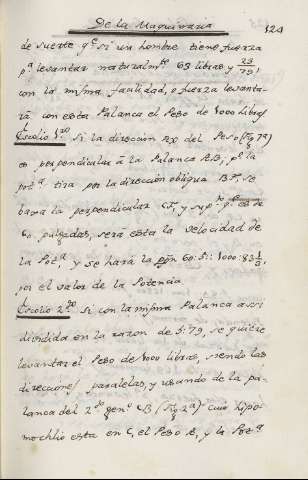 De la Maquinaria
124
de suerte q.e si un hombre tiene fuerza
p.a levantar naturalm.te 63 libras y 23/79,
con la misma facilidad, o fuerza levanta-
rá con esta Palanca el Peso de 1000 libras
Escolio 1.o Si la direccion AX del Peso (Fig 7.a)
es perpendicular á la Palanca AB, p.o la
pot.a tira por la direccion obliqua BF, se
baxa la perpendicular CF, y sup.to q.e es de
60 pulgadas, será esta la velocidad de
la Pot.a y se hará la ppn 60:5::1000:83 1/3,
por el valor de la Potencia
Escolio 2.o Si con la misma Palanca assi
dividida en la razon de 5:79, se quiere
levantar el Peso de 1000 libras, siendo las
direcciones paralelas, y usando de la pa-
lanca del 2.do gen.o CB (Fig 2.a) cuio hipo-
mochlio esta en C, el Peso A, y la Pot.a